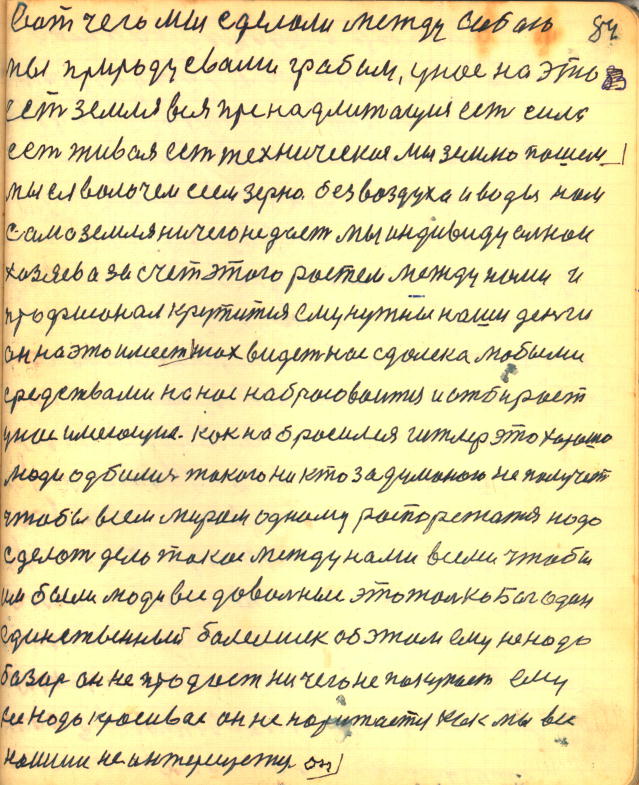 Вот чего мы сделали между сабою 84
мы природу свами грабим, унас на это
ест земля вся пренадлижащия ест сила
ест живая ест техническая мы землю пашем
мы ея волочем сеем зерно. без воздуха и воды нам
само земля ничего недает мы индивидуалнои
хозяева за счет этого ростем между нами и
профсионал крутится ему нужны наши денги
он на это имеет нюх видет нас сдалека любыми
средствами на нас набрасоваится и отбирает
унас имеющия. как набросился гитлер это хорошо
люди одбилис такого никто задуманою не получет
чтобы всем миром одному распоряжатся надо
сделат дело такое между нами всеми чтобы
им были люди все доволные это толко Бог один
единственный болелшик об этом ему ненадо
базар он не продаст ничего не покупает ему
не надо красивае он не наритается как мы все
нашим не интересуется он